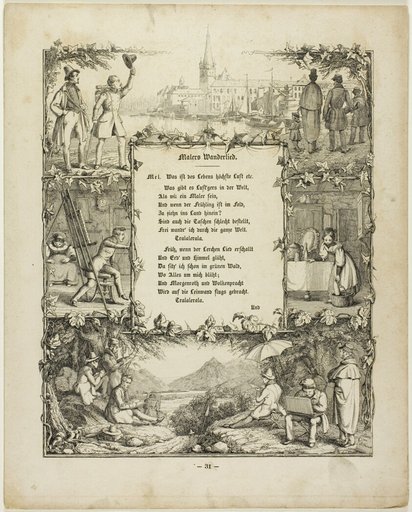 Malers Wanderlied.
Mel. Was ist des Lebens höchste Lust etc.
Was gibt es Lust'gers in der Welt,
Als wie ein Maler sein,
Und wenn der Frühling ist im Feld,
Ja ziehn ins Land hinein?
Sind auch die Taschen schlecht bestellt,
Frei wandr' ich durch die ganze Welt.
Tralalerala.
Früh, wenn der Lerchen Lied erschallt
Und Erd' und Himmel glüht,
Da sitz' ich schon im grünen Wald,
Wo Alles um mich blüht;
Und Morgenroth und Wolkenpracht
Wird auf die Leinwand flugs gebracht.
Tralalerala.
Und
– 31 –